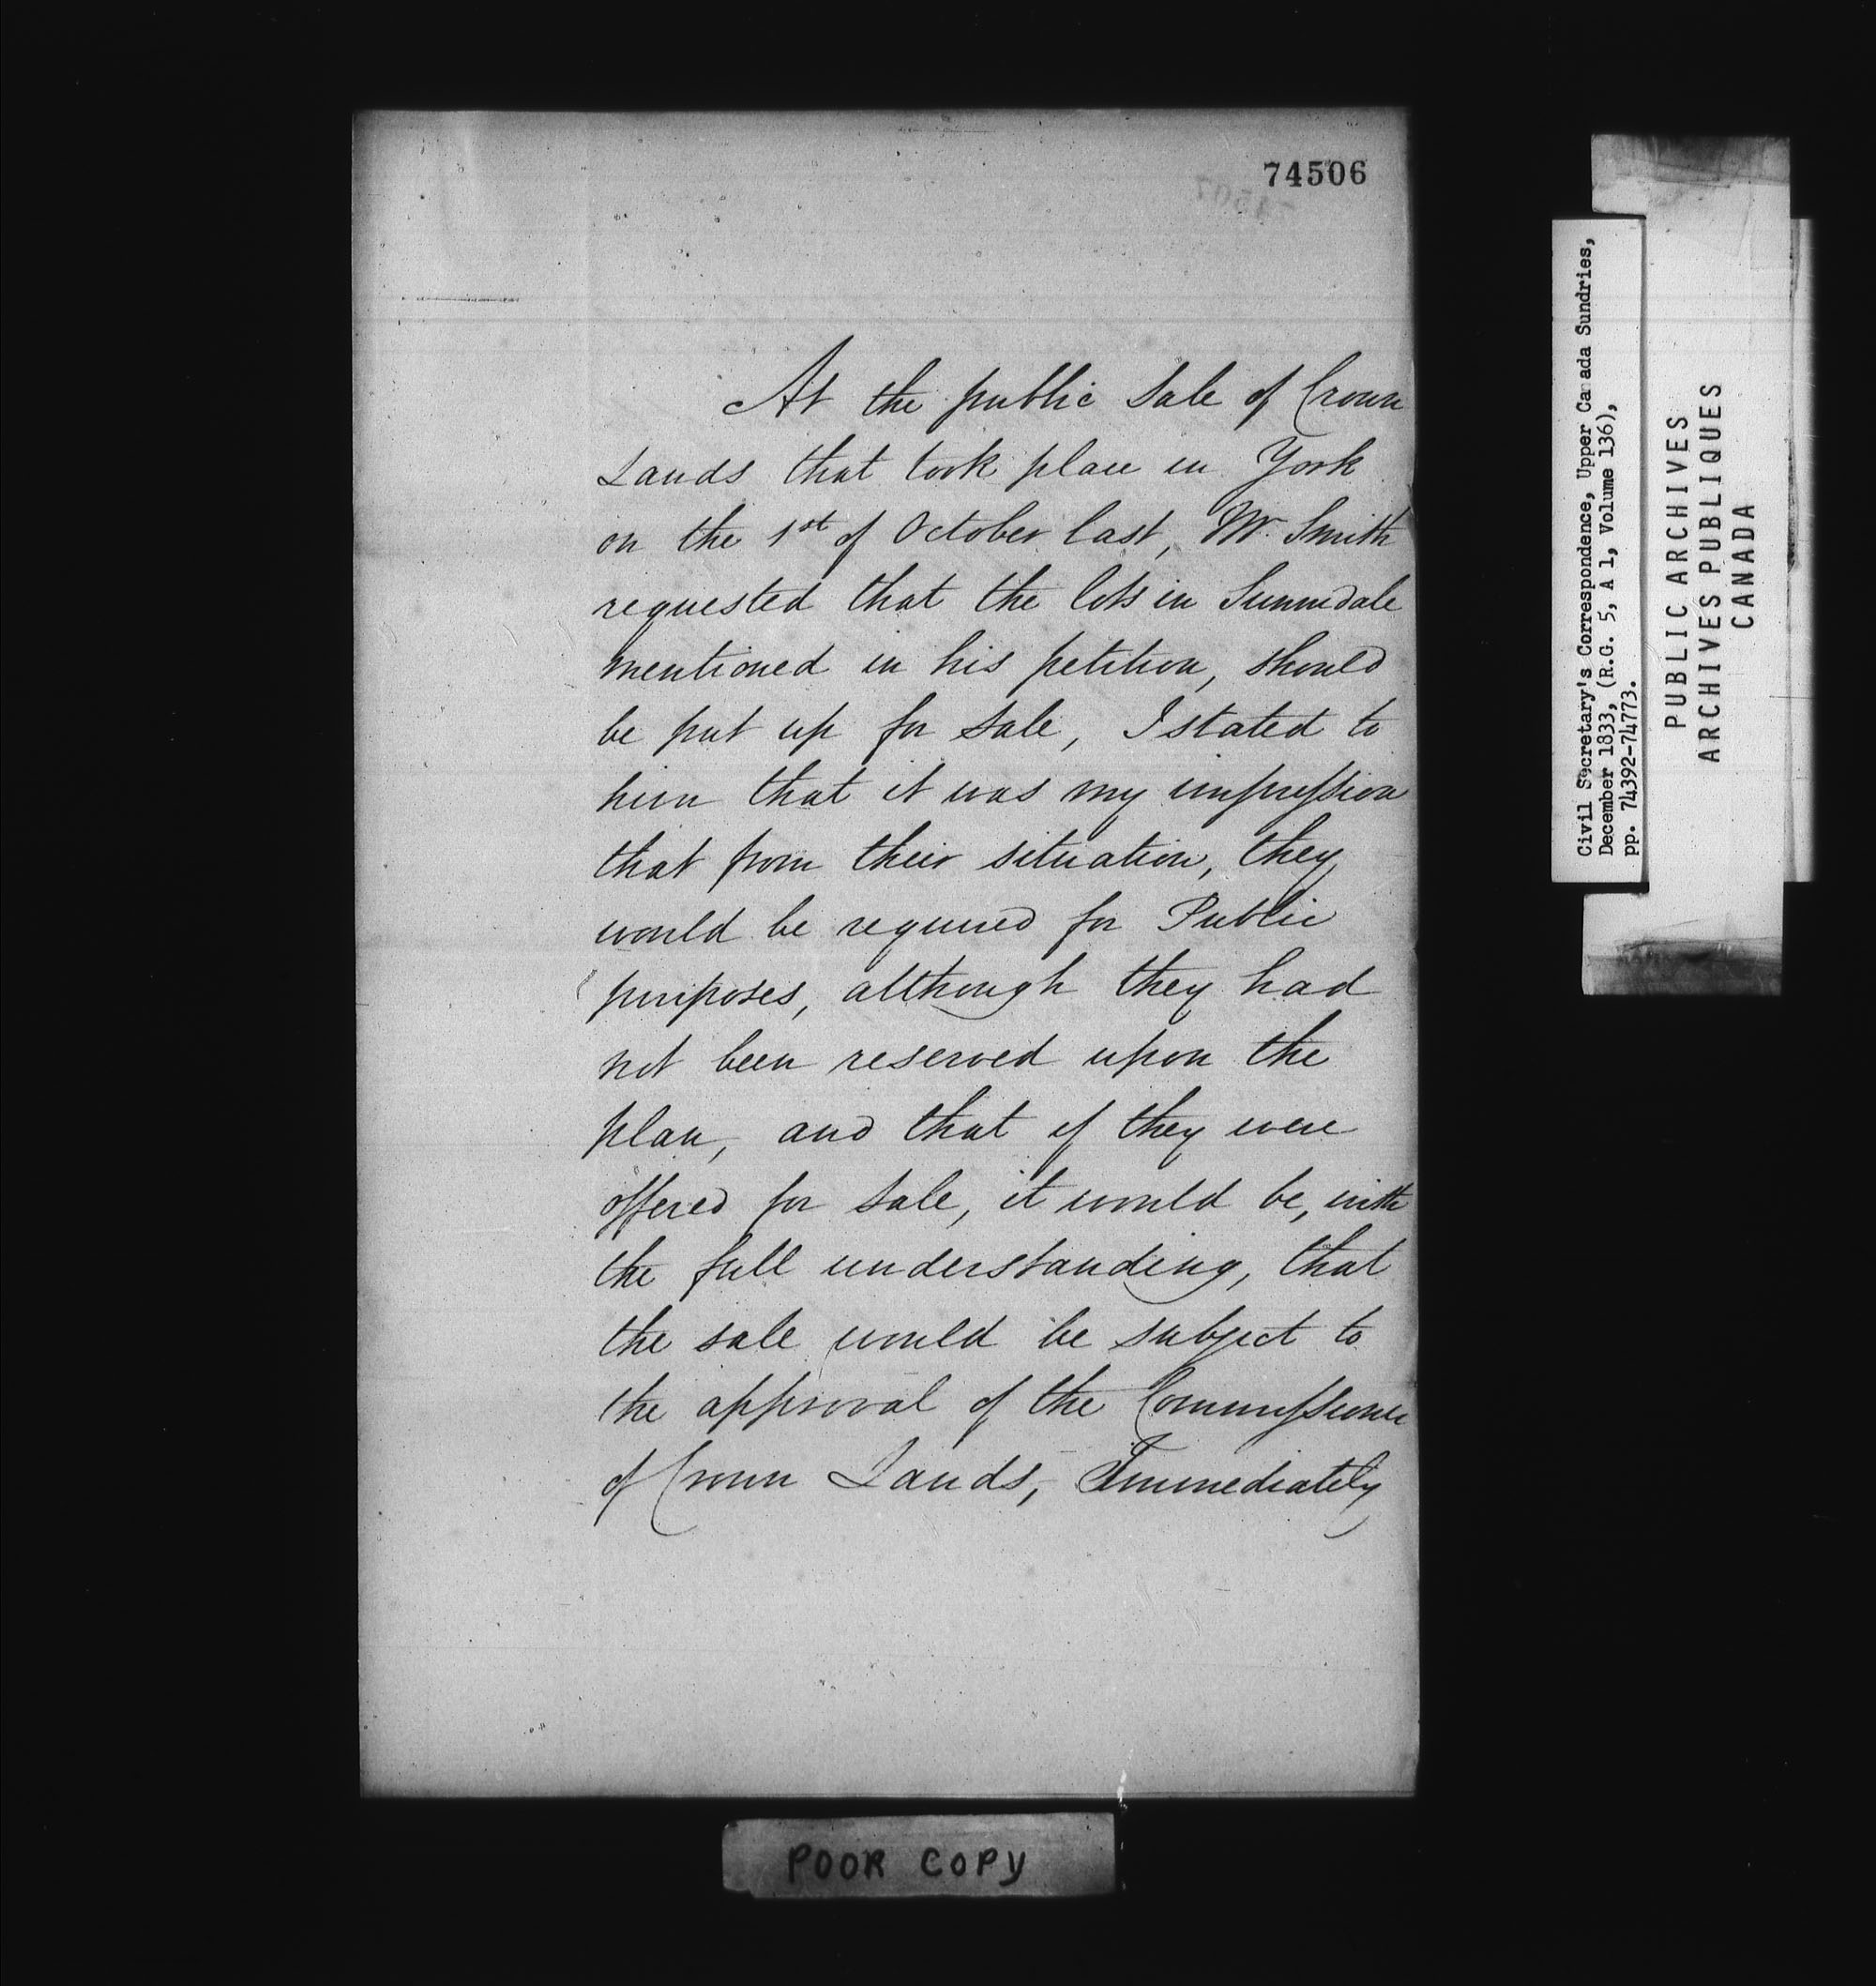 74506
At the public Sale of Crown
Lands that took place in York
on the 1st of October last, Mr. Smith
requested that the lots in Sunnidale
mentioned in his petition, should
be put up for Sale, I stated to
him that it was my impression
that from their situation, they
would be required for Public
purposes, although they had
not been reserved upon the
plan, and that if they were
offered for Sale, it would be, with
the full understanding, that
the sale would be subject to
the approval of the Commissioner
of Crown Lands, Immediately
Civil Secretary's Correspondence, Upper Canada Sundries,
December 1833, (R.G. 5, A 1, Volume 136),
pp. 74392-74773.
PUBLIC ARCHIVES
ARCHIVES PUBLIQUES
CANADA
POOR COPY